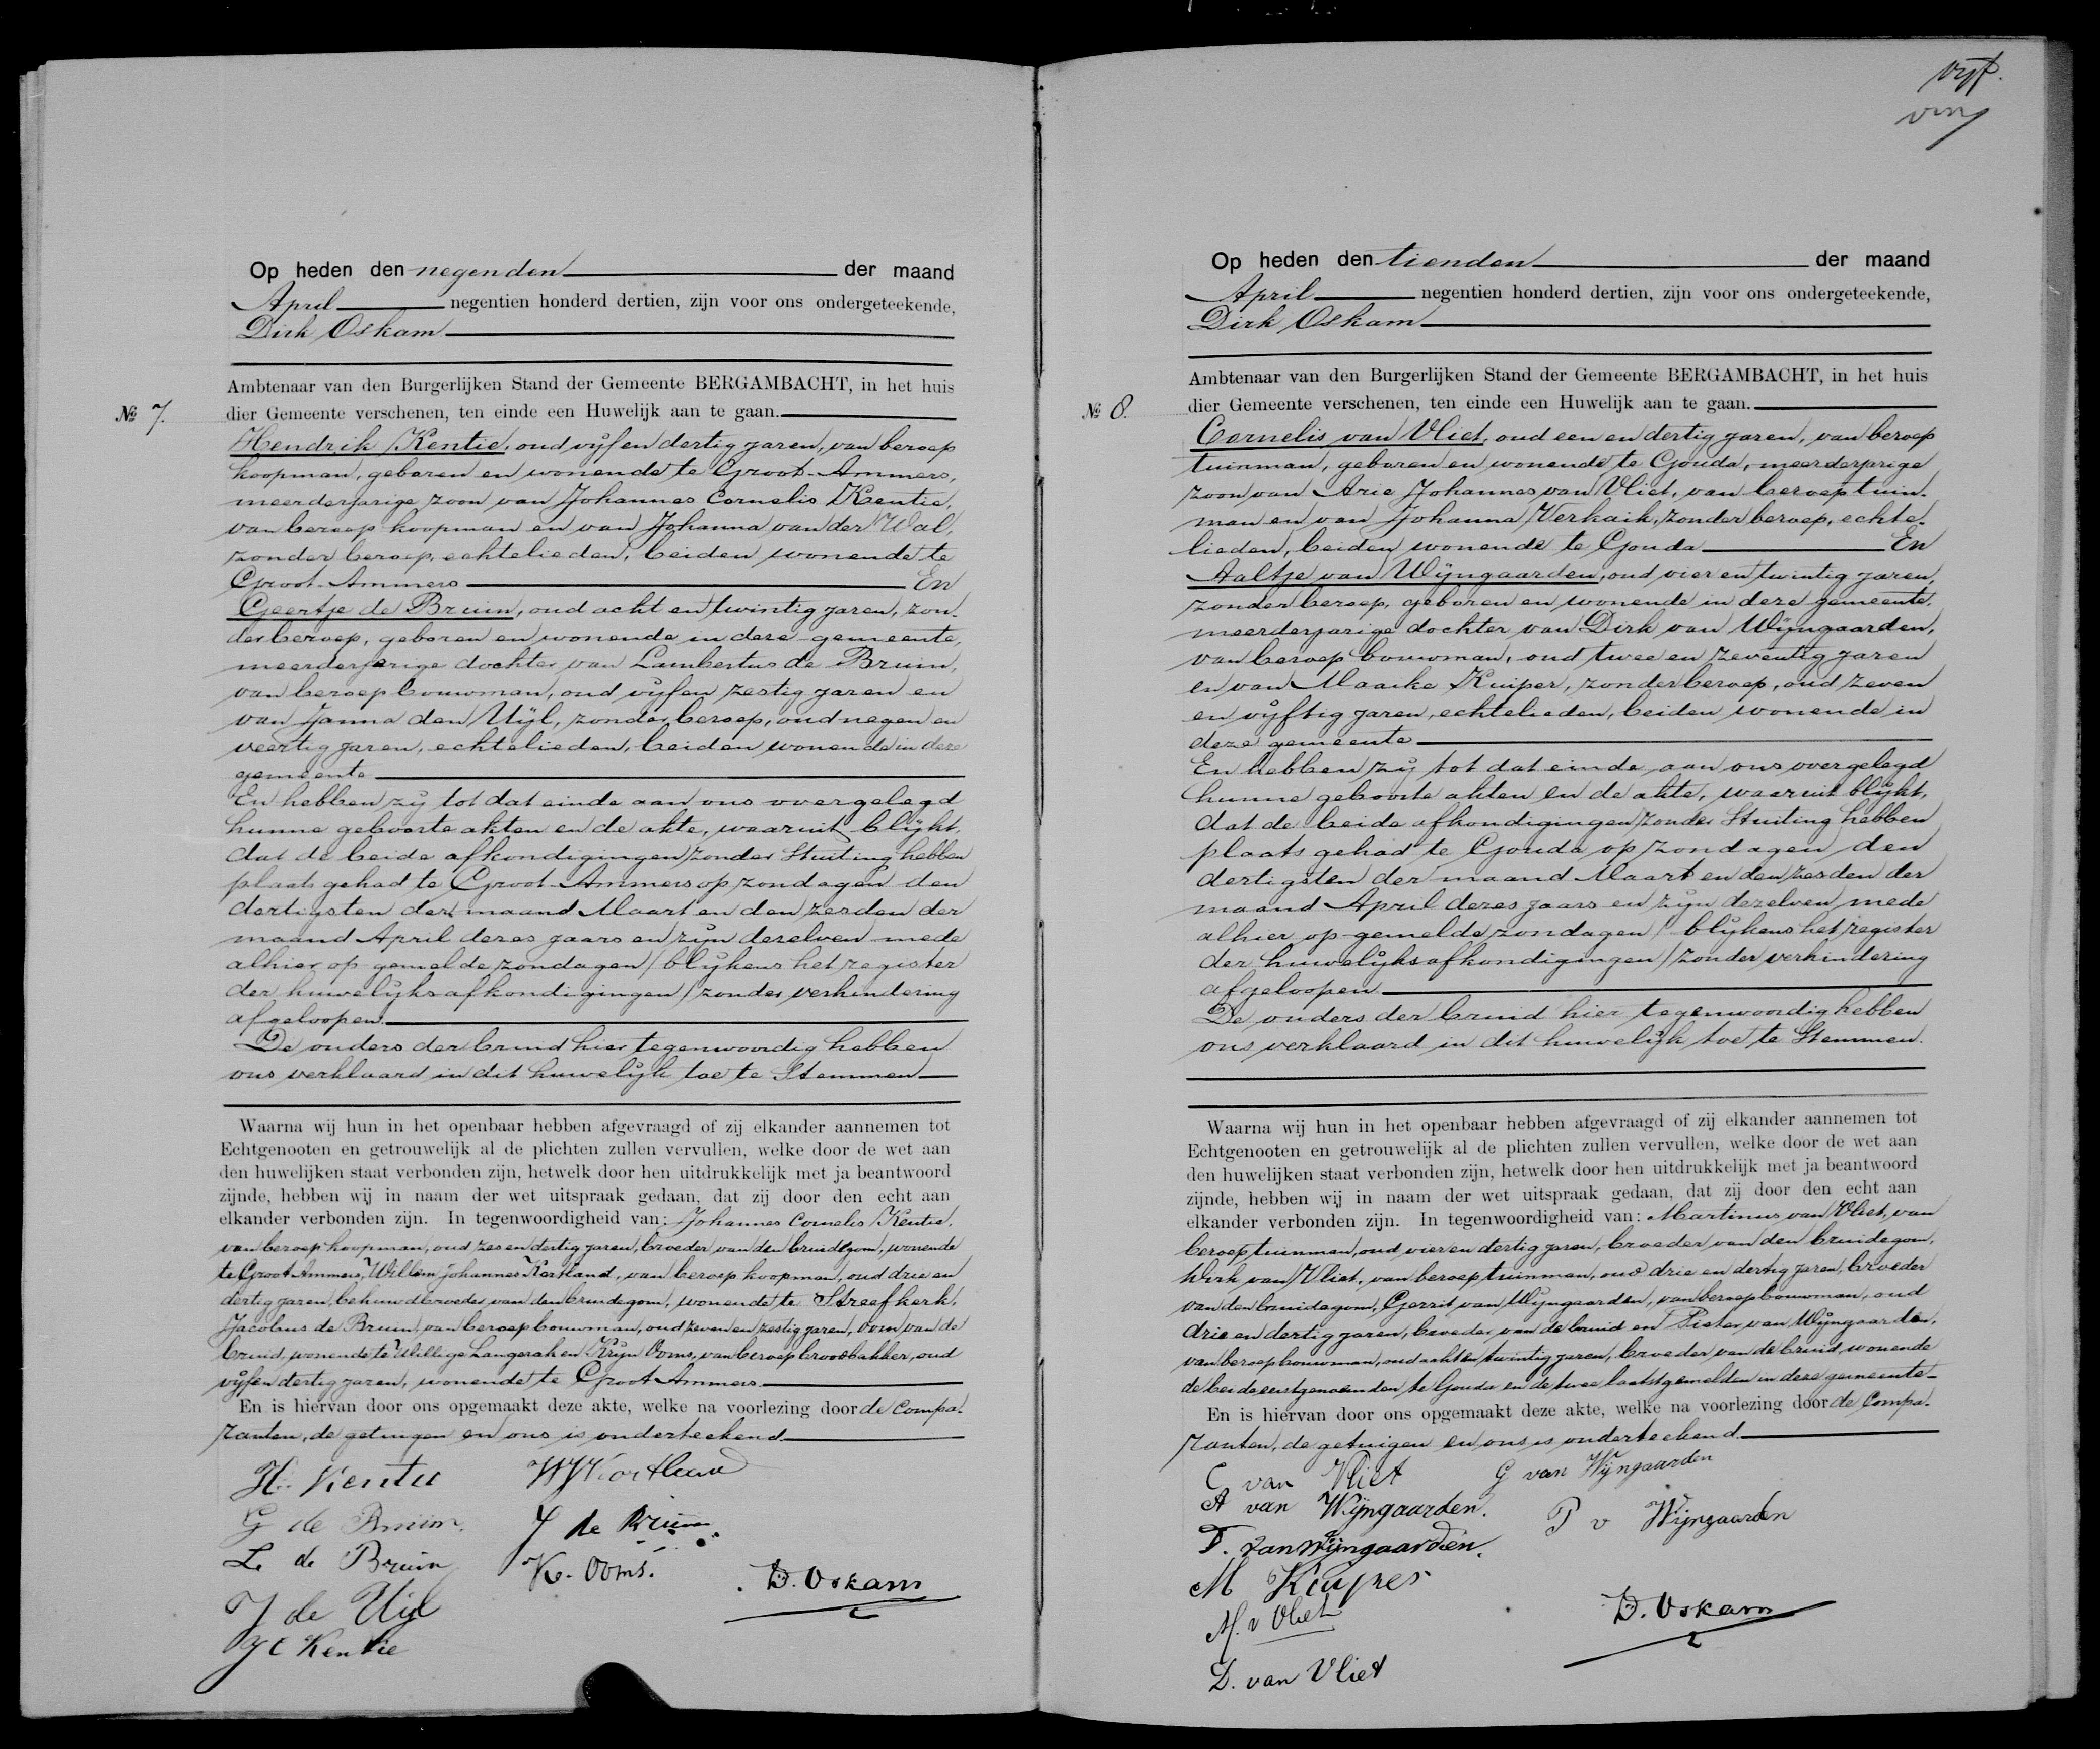 Op heden den negenden der maand
April negentien honderd dertien, zijn voor ons ondergeteekende,
Dirk Oskam
Ambtenaar van den Burgerlijken Stand der Gemeente BERGAMBACHT, in het huis
№ 7. dier Gemeente verschenen, ten einde een Huwelijk aan te gaan.
Hendrik Kentie, oud vijf en dertig jaren, van beroep
koopman, geboren en wonende te Groot-Ammers,
meerderjarige zoon van Johannes Cornelis Kentie,
van beroep koopman en van Johanna van der Wal,
zonder beroep, echtelieden, beiden wonende te
Groot-Ammers En
Geertje de Bruin, oud acht en twintig jaren, zon-
der beroep, geboren en wonende in deze gemeente,
meerderjarige dochter van Lambertus de Bruin,
van beroep bouwman, oud vijf en zestig jaren en
van Janna den Uijl, zonder beroep, oud negen en
veertig jaren, echtelieden, beiden wonende in deze
gemeente
En hebben zij tot dat einde aan ons overgelegd
hunne geboorte akten en de akte, waaruit blijkt,
dat de beide afkondigingen zonder stuiting hebben
plaats gehad te Groot-Ammers op zondagen den
dertigsten der maand Maart en den zesden der
maand April dezes jaars en zijn dezelven mede
alhier op gemelde zondagen (blijkens het register
der huwelijksafkondigingen) zonder verhindering
afgeloopen.
De ouders der bruid hier tegenwoordig hebben
ons verklaard in dit huwelijk toe te stemmen
Waarna wij hun in het openbaar hebben afgevraagd of zij elkander aannemen tot
Echtgenooten en getrouwelijk al de plichten zullen vervullen, welke door de wet aan
den huwelijken staat verbonden zijn, hetwelk door hen uitdrukkelijk met ja beantwoord
zijnde, hebben wij in naam der wet uitspraak gedaan, dat zij door den echt aan
elkander verbonden zijn. In tegenwoordigheid van: Johannes Cornelis Kentie,
van beroep koopman, oud zes en dertig jaren, broeder van den bruidegom, wonende
te Groot Ammers, Willem Johannes Kortland, van beroep koopman, oud drie en
dertig jaren, behuwdbroeder van den bruidegom, wonende te Streefkerk,
Jacobus de Bruin, van beroep bouwman, oud zeven en zestig jaren, oom van de
bruid, wonende te Willige Langerak en Krijn Ooms, van beroep broodbakker, oud
vijf en dertig jaren, wonende te Groot Ammers.
En is hiervan door ons opgemaakt deze akte, welke na voorlezing door de Compa-
ranten, de getuigen en ons is onderteekend.
H. Kentie WJ Kortland
G de Bruin. J de Bruin
L. de Bruin K. Ooms.
D. Oskam
J de Uijl
JC Kentie
vijf.
Op heden den tienden der maand
April negentien honderd dertien, zijn voor ons ondergeteekende,
Dirk Oskam
Ambtenaar van den Burgerlijken Stand der Gemeente BERGAMBACHT, in het huis
№ 8. dier Gemeente verschenen, ten einde een Huwelijk aan te gaan.
Cornelis van Vliet, oud een en dertig jaren, van beroep
tuinman, geboren en wonende te Gouda, meerderjarige
zoon van Arie Johannes van Vliet, van beroep tuin-
man en van Johanna Verkaik, zonder beroep, echte-
lieden, beiden wonende te Gouda En
Aaltje van Wijngaarden, oud vier en twintig jaren,
zonder beroep, geboren en wonende in deze gemeente,
meerderjarige dochter van Dirk van Wijngaarden,
van beroep bouwman, oud twee en zeventig jaren
en van Maaike Kuiper, zonder beroep, oud zeven
en vijftig jaren, echtelieden, beiden wonende in
deze gemeente
En hebben zij tot dat einde aan ons overgelegd
hunne geboorte akten en de akte, waaruit blijkt,
dat de beide afkondigingen zonder stuiting hebben
plaats gehad te Gouda op zondagen den
dertigsten der maand Maart en den zesden der
maand April dezes jaars en zijn dezelven mede
alhier op gemelde zondagen (blijkens het register
der huwelijksafkondigingen) zonder verhindering
afgeloopen
De ouders der bruid hier tegenwoordig hebben
ons verklaard in dit huwelijk toe te stemmen.
Waarna wij hun in het openbaar hebben afgevraagd of zij elkander aannemen tot
Echtgenooten en getrouwelijk al de plichten zullen vervullen, welke door de wet aan
den huwelijken staat verbonden zijn, hetwelk door hen uitdrukkelijk met ja beantwoord
zijnde, hebben wij in naam der wet uitspraak gedaan, dat zij door den echt aan
elkander verbonden zijn. In tegenwoordigheid van: Martinus van Vliet, van
beroep tuinman, oud vier en dertig jaren, broeder van den bruidegom,
Dirk van Vliet, van beroep tuinman, oud drie en dertig jaren, broeder
van den bruidegom, Gerrit van Wijngaarden, van beroep bouwman, oud
drie en dertig jaren, broeder van de bruid en Pieter van Wijngaarden,
van beroep bouwman, oud acht en twintig jaren, broeder van de bruid, wonende
de beide eerstgenoemden te Gouda en de twee laatstgemelden in deze gemeente
En is hiervan door ons opgemaakt deze akte, welke na voorlezing door de Compa-
ranten, de getuigen en ons is onderteekend.
C van Vliet G van Wijngaarden
A van Wijngaarden. P v Wijngaarden
D. van Wijngaarden.
M Kuyper
M. v Vliet D. Oskam
D. van Vliet